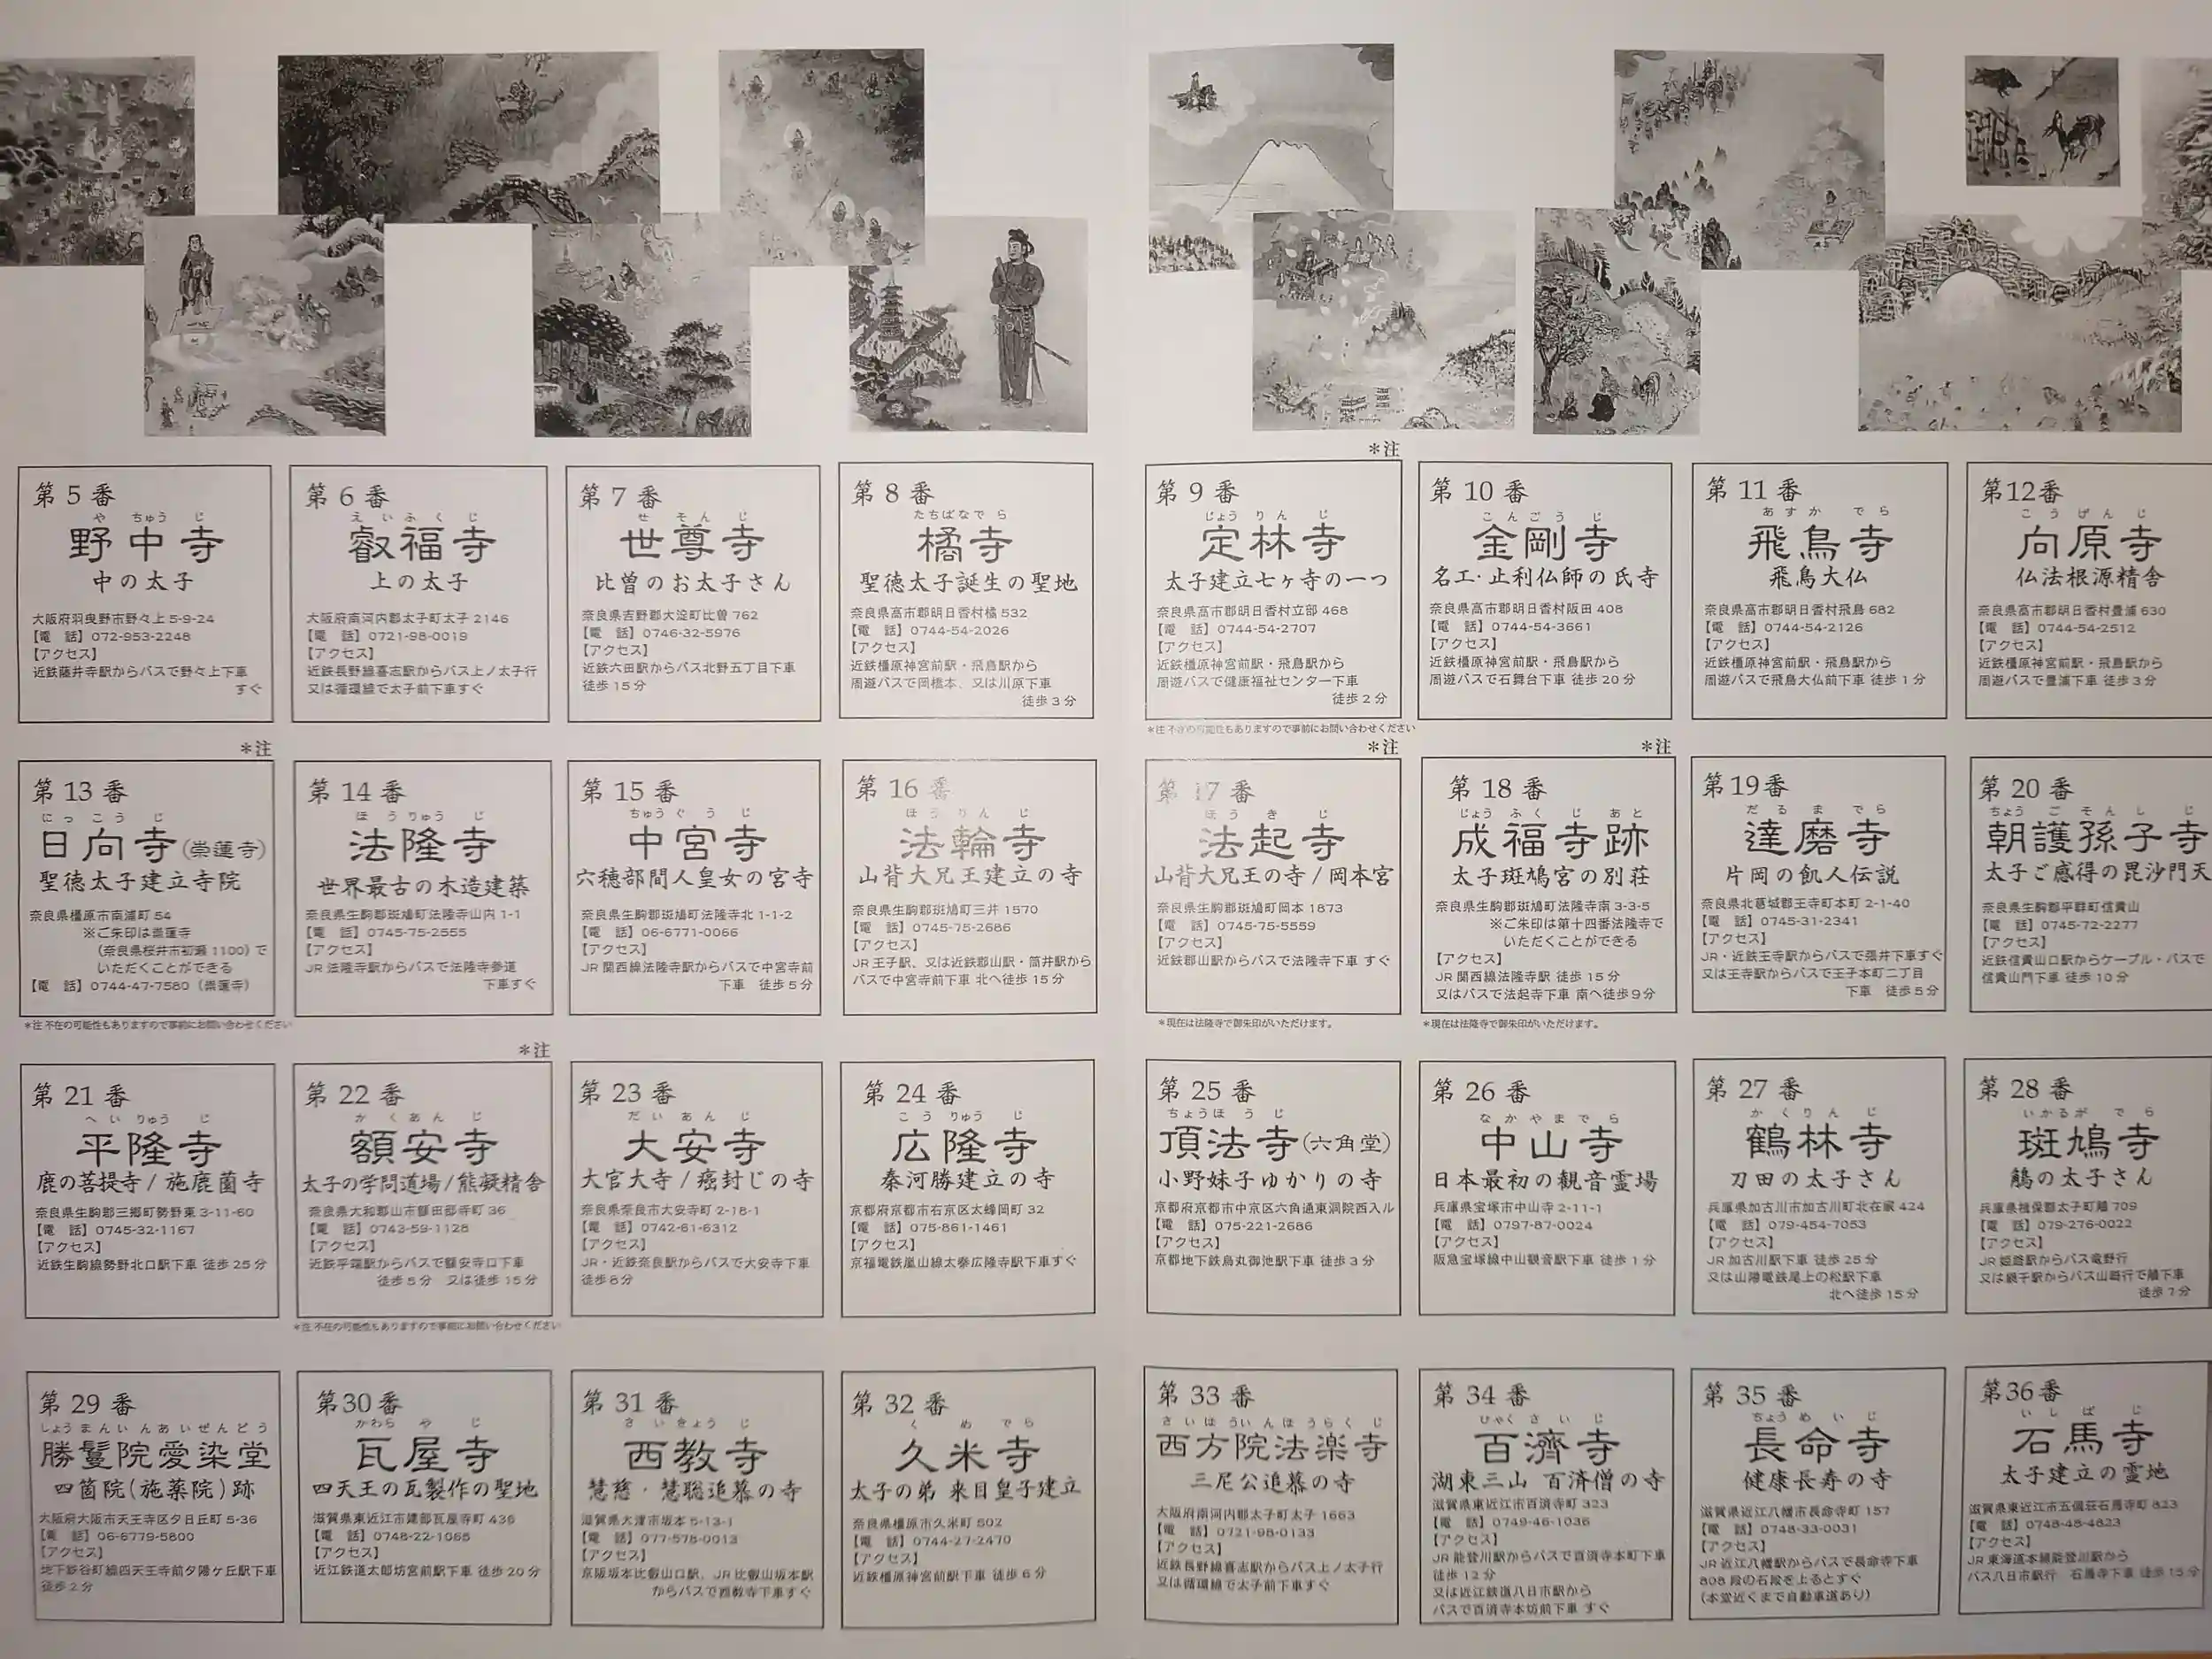 第5番
や ちゅう じ
野中寺
中の太子
大阪府羽曳野市野々上5-9-24
【電 話】072-953-2248
【アクセス】
近鉄藤井寺駅からバスで野々上下車
すぐ
第6番
えい ふく じ
叡福寺
上の太子
大阪府南河内郡太子町太子2146
【電 話】0721-98-0019
【アクセス】
近鉄長野線喜志駅からバス上ノ太子行
又は循環線で太子前下車すぐ
第7番
せ そん じ
世尊寺
比曽のお太子さん
奈良県吉野郡大淀町比曽762
【電 話】0746-32-5976
【アクセス】
近鉄六田駅からバス北野五丁目下車
徒歩15分
第8番
たちばなでら
橘寺
聖徳太子誕生の聖地
奈良県高市郡明日香村橘532
【電 話】0744-54-2026
【アクセス】
近鉄橿原神宮前駅・飛鳥駅から
周遊バスで岡橋本、又は川原下車
徒歩3分
*注
第9番
じょう りん じ
定林寺
太子建立七ヶ寺の一つ
奈良県高市郡明日香村立部468
【電 話】0744-54-2707
【アクセス】
近鉄橿原神宮前駅・飛鳥駅から
周遊バスで健康福祉センター下車
徒歩2分
*注 不在の可能性もありますので事前にお問い合わせください
第10番
こんごう じ
金剛寺
名工·止利仏師の氏寺
奈良県高市郡明日香村阪田408
【電 話】0744-54-3661
【アクセス】
近鉄橿原神宮前駅・飛鳥駅から
周遊バスで石舞台下車 徒歩20分
第11番
あすか でら
飛鳥寺
飛鳥大仏
奈良県高市郡明日香村飛鳥682
【電 話】0744-54-2126
【アクセス】
近鉄橿原神宮前駅・飛鳥駅から
周遊バスで飛鳥大仏前下車 徒歩1分
第12番
こうげん じ
向原寺
仏法根源精舎
奈良県高市郡明日香村豊浦630
【電 話】0744-54-2512
【アクセス】
近鉄橿原神宮前駅・飛鳥駅から
周遊バスで豊浦下車 徒歩3分
*注
第13番
にっ こう じ
日向寺(崇蓮寺)
聖徳太子建立寺院
奈良県橿原市南浦町54
※ご朱印は崇蓮寺
(奈良県桜井市初瀬1100)で
いただくことができる
【電 話】0744-47-7580(崇蓮寺)
*注 不在の可能性もありますので事前にお問い合わせください
第14番
ほうりゅう じ
法隆寺
世界最古の木造建築
奈良県生駒郡斑鳩町法隆寺山内1-1
【電 話】0745-75-2555
【アクセス】
JR法隆寺駅からバスで法隆寺参道
下車すぐ
第15番
ちゅうぐう じ
中宮寺
穴穂部間人皇女の宮寺
奈良県生駒郡斑鳩町法隆寺北1-1-2
【電 話】06-6771-0066
【アクセス】
JR関西線法隆寺駅からバスで中宮寺前
下車 徒歩5分
第16番
ほうりん じ
法輪寺
山背大兄王建立の寺
奈良県生駒郡斑鳩町三井1570
【電 話】0745-75-2686
【アクセス】
JR王子駅、又は近鉄郡山駅・筒井駅から
バスで中宮寺前下車 北へ徒歩15分
*注
第17番
ほう き じ
法起寺
山背大兄王の寺/岡本宮
奈良県生駒郡斑鳩町岡本1873
【電 話】0745-75-5559
【アクセス】
近鉄郡山駅からバスで法隆寺下車 すぐ
*現在は法隆寺で御朱印がいただけます。
*注
第18番
じょう ふく じ あと
成福寺跡
太子斑鳩宮の別荘
奈良県生駒郡斑鳩町法隆寺南3-3-5
※ご朱印は第十四番法隆寺で
いただくことができる
【アクセス】
JR関西線法隆寺駅 徒歩15分
又はバスで法起寺下車 南へ徒歩9分
*現在は法隆寺で御朱印がいただけます。
第19番
だるま でら
達磨寺
片岡の飢人伝説
奈良県北葛城郡王寺町本町2-1-40
【電 話】0745-31-2341
【アクセス】
JR・近鉄王寺駅からバスで張井下車すぐ
又は王寺駅からバスで王子本町二丁目
下車 徒歩5分
第20番
ちょう ご そん し じ
朝護孫子寺
太子ご感得の毘沙門天
奈良県生駒郡平群町信貴山
【電 話】0745-72-2277
【アクセス】
近鉄信貴山口駅からケーブル・バスで
信貴山門下車 徒歩10分
第21番
へいりゅう じ
平隆寺
鹿の菩提寺/施鹿薗寺
奈良県生駒郡三郷町勢野東3-11-60
【電 話】0745-32-1167
【アクセス】
近鉄生駒線勢野北口駅下車 徒歩25分
*注
第22番
かくあん じ
額安寺
太子の学問道場/熊凝精舎
奈良県大和郡山市額田部寺町36
【電 話】0743-59-1128
【アクセス】
近鉄平端駅からバスで額安寺口下車
徒歩5分 又は徒歩15分
*注 不在の可能性もありますので事前にお問い合わせください
第23番
だいあん じ
大安寺
大官大寺/癌封じの寺
奈良県奈良市大安寺町2-18-1
【電 話】0742-61-6312
【アクセス】
JR・近鉄奈良駅からバスで大安寺下車
徒歩8分
第24番
こうりゅう じ
広隆寺
秦河勝建立の寺
京都府京都市右京区太蜂岡町32
【電 話】075-861-1461
【アクセス】
京福電鉄嵐山線太秦広隆寺駅下車すぐ
第25番
ちょうほう じ
頂法寺(六角堂)
小野妹子ゆかりの寺
京都府京都市中京区六角通東洞院西入ル
【電 話】075-221-2686
【アクセス】
京都地下鉄烏丸御池駅下車 徒歩3分
第26番
なかやまでら
中山寺
日本最初の観音霊場
兵庫県宝塚市中山寺2-11-1
【電 話】0797-87-0024
【アクセス】
阪急宝塚線中山観音駅下車 徒歩1分
第27番
かくりん じ
鶴林寺
刀田の太子さん
兵庫県加古川市加古川町北在家424
【電 話】079-454-7053
【アクセス】
JR加古川駅下車 徒歩25分
又は山陽電鉄尾上の松駅下車
北へ徒歩15分
第28番
いかるが でら
斑鳩寺
鵤の太子さん
兵庫県揖保郡太子町鵤709
【電 話】079-276-0022
【アクセス】
JR姫路駅からバス竜野行
又は網干駅からバス山崎行で鵤下車
徒歩7分
第29番
しょうまんいんあいぜんどう
勝鬘院愛染堂
四箇院(施薬院)跡
大阪府大阪市天王寺区夕日丘町5-36
【電 話】06-6779-5800
【アクセス】
地下鉄谷町線四天王寺前夕陽ケ丘駅下車
徒歩2分
第30番
かわら や じ
瓦屋寺
四天王の瓦製作の聖地
滋賀県東近江市建部瓦屋寺町436
【電 話】0748-22-1065
【アクセス】
近江鉄道太郎坊宮前駅下車 徒歩20分
第31番
さいきょう じ
西教寺
慧慈・慧聡追慕の寺
滋賀県大津市坂本5-13-1
【電 話】077-578-0013
【アクセス】
京阪坂本比叡山口駅、JR比叡山坂本駅
からバスで西教寺下車すぐ
第32番
く め でら
久米寺
太子の弟 来目皇子建立
奈良県橿原市久米町502
【電 話】0744-27-2470
【アクセス】
近鉄橿原神宮前駅下車 徒歩6分
第33番
さいほういんほうらくじ
西方院法楽寺
三尼公追慕の寺
大阪府南河内郡太子町太子1663
【電 話】0721-98-0133
【アクセス】
近鉄長野線喜志駅からバス上ノ太子行
又は循環線で太子前下車すぐ
第34番
ひゃくさい じ
百濟寺
湖東三山 百済僧の寺
滋賀県東近江市百済寺町323
【電 話】0749-46-1036
【アクセス】
JR能登川駅からバスで百済寺本町下車
徒歩12分
又は近江鉄道八日市駅から
バスで百済寺本坊前下車 すぐ
第35番
ちょうめい じ
長命寺
健康長寿の寺
滋賀県近江八幡市長命寺町157
【電 話】0748-33-0031
【アクセス】
JR近江八幡駅からバスで長命寺下車
808段の石段を上るとすぐ
(本堂近くまで自動車道あり)
第36番
いしばじ
石馬寺
太子建立の霊地
滋賀県東近江市五個荘石馬寺町823
【電 話】0748-48-4823
【アクセス】
JR東海道本線能登川駅から
バス八日市駅行 石馬寺下車 徒歩15分